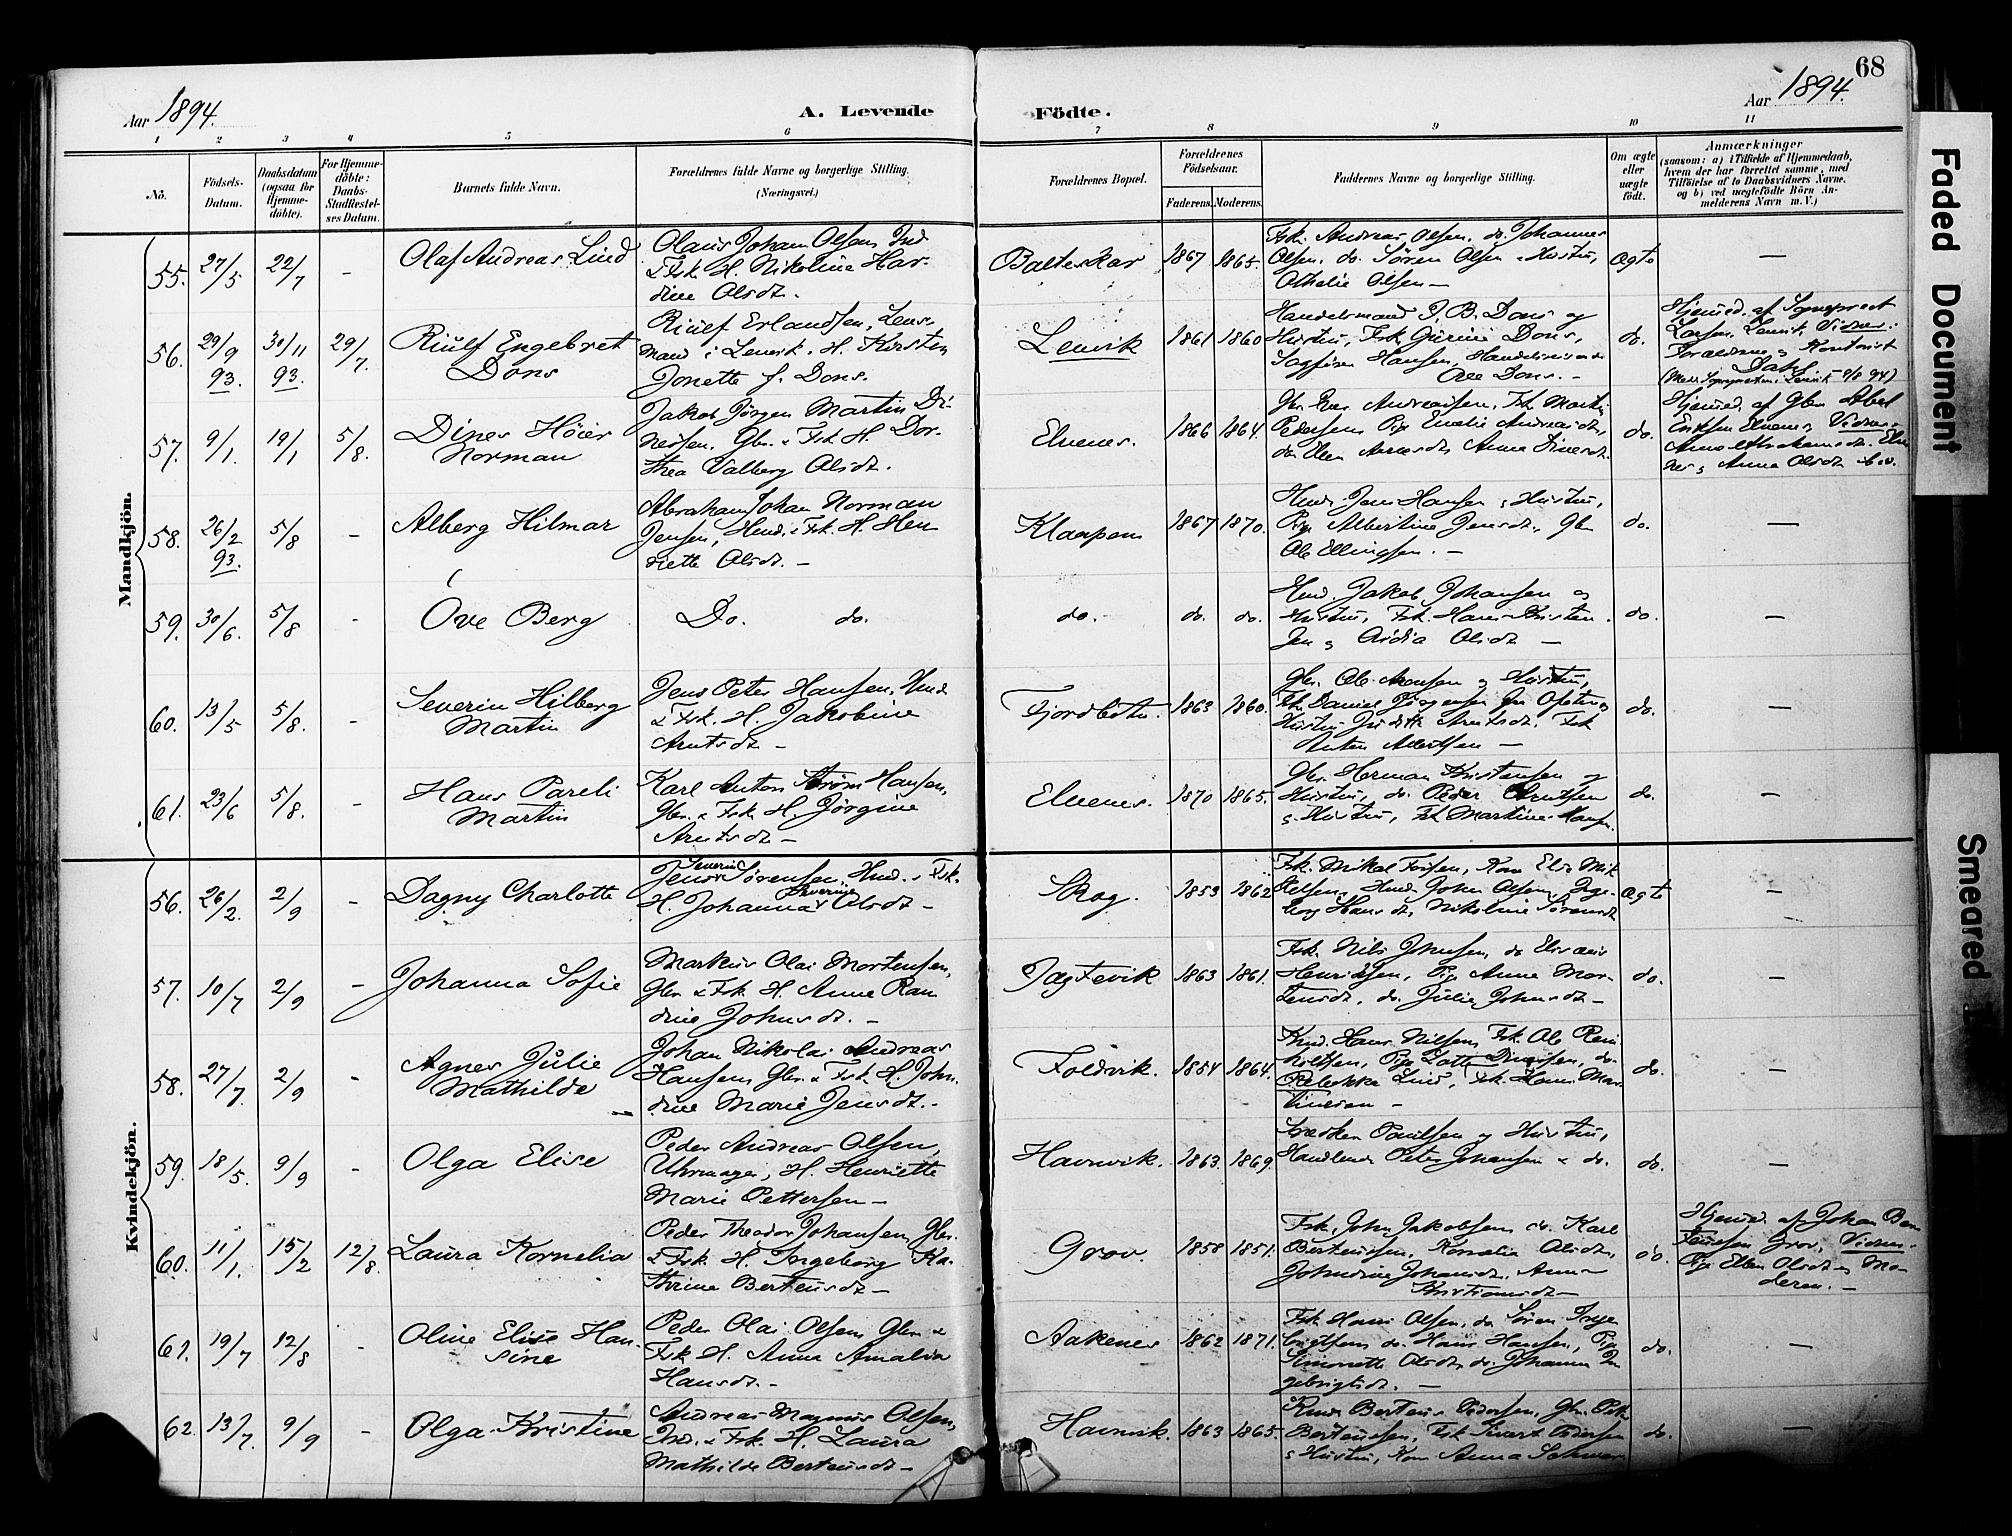 68
Aar 1894.
A. Levende Födte.
Aar 1894.
1 2 3 4 5 6 7 8 9 10 11
No.
Födsels-Datum.
Daabsdatum (ogsaa for Hjemme-döbte).
For Hjemme-döbte: Daabs-Stadfæstel-ses Datum.
Barnets fulde Navn.
Forældrenes fulde Navne og borgerlige Stilling. (Næringsvei.)
Forældrenes Bopæl.
Forældrenes Födselsaar.
Faderens. Moderens.
Faddernes Navne og borgerlige Stilling.
Om ægte eller uægte födt.
Anmærkninger
(saasom: a) i Tilfælde af Hjemmedaab,
hvem der har forrettet samme, med
Tilföielse af to Daabsvidners Navne,
og b) ved uægtefödte Börn An-
melderens Navn m.V.)
Mandkjön.
55. 27/5 22/7 - Olaf Andreas Lind
Olaus Johan Olsen, Ind.
& Fsk. H. Nikoline Har-
dine Olsdt.
Balteskar 1867 1865.
Fsk. Andreas Olsen, do. Johannes
Olsen, do. Sören Olsen & Hustru,
Othelie Olsen —
Ægte —
56. 29/9 93. 30/11 93. 29/7. Riulf Engebret
Dons
Riulf Erlandsen, Lens-
mand i Lenvik, H. Kirsten
Jonette f. Dons.
Lenvik 1861 1860
Handelsmand J. B. Dons og
Hustru, Fsk. Dons,
Sagförer Hansen, Handels
Ove Dons. -
do.
Hjemmed. af Sogneprest
Larsen, Lenvik, Vidner:
Forældrene og Kontorist
Dahl
57. 9/1. 19/1 5/8. Dines Höier
Norman
Jakob Jörgen Martin Di-
nesen, Gbr. & Fsk. H. Dor-
thea Valberg Olsdt.
Elvenes. 1866 1864.
Andreassen, Fsk. Martin
Pedersen, Pige Emelie Andreasdt.,
do. Ellen Anna Dinesdt.
do.
Hjemmed. af Gbr. Abel
Eriksen Elvenes, Vidner
Anna Olsdt.
58. 26/2 93. 5/8 - Alberg Hilmar
Abraham Johan Norman
Jensen, Hmd. & Fsk. H. Hen
riette Olsdt. —
Klaapen 1867 1870.
Hmd. Jens Hansen & Hustru,
Pige Albertine Jensdt., Gbr
Ole Ellingsen. —
do. —
59. 30/6. 5/8 - Ove Berg
Do. do.
do. do. do.
Hmd. Jakob Johansen og
Hustru, Fsk. Hans Kristen
sen & Olsdt —
do. —
60. 13/5 5/8. - Severin Hilberg
Martin
Jens Peter Hansen, Hmd
& Fsk. H. Jakobine
Arntsdt —
Fjordbotn. 1863 1860.
Gbr. Ole Hansen og Hustru,
Fsk. Daniel Jörgensen
Hustru Judith Arntsdt. Fsk
Anton Albertsen —
do. —
61. 23/6 5/8. - Hans Pareli
Martin
Karl Anton Ström Hansen,
Gbr. & Fsk. H. Jörgine
Arntsdt —
Elvenes. 1870 1865.
Gbr. Herman Kristensen og
Hustru, do. Peder Arntsen
& Hustru, Fsk Martine Hansen.
do. —
Kvindekjön.
56. 26/2. 2/9 - Dagny Charlotte
Jens Severin Sörensen, Hmd. & Fsk.
H. Johanna Severine Olsdt —
Skog. 1853 1862
Fsk. Mikal Kone Elis Mik
kelsen, Hmd. John Olsen, Inge-
borg Hansdt, Nikoline Sörensdt
Ægte —
57. 10/7 2/9 - Johanna Sofie
Markus Olai Mortensen,
Gbr. & Fsk. H. Anne Ran
dine Johnsdt. —
Jagtevik 1863 1861.
Fsk. Nils Jensen, do Elisæus
Henriksen, Pige Anne Mor-
tensdt., do. Julie Johnsdt —
do. —
58. 27/7. 2/9 - Agnes Julie
Mathilde
Johan Nikolai Andreas
Hansen, Gbr. & Fsk. H. John-
dine Marie Jensdt. -
Foldvik. 1854 1864.
Hmd. Hans Nilsen, Fsk. Ole Rein
holtsen, Pige Lotte Dinesen, do.
Rebekka Lind, Fsk. Hans Mar
tinsen —
do. —
59. 18/5. 9/9 - Olga Elise
Peder Andreas Olsen,
Uhrmager, H. Henriette
Marie Pettersen —
Havnvik. 1863. 1869.
Paulsen og Hustru,
Handlende Peter Johansen & do.
do. —
60. 11/1. 15/2 12/8. Laura Kornelia
Peder Theodor Johansen, Gbr.
& Fsk. H. Ingeborg Ka-
thrine Berteusdt —
Grov. 1858 1851.
Fsk. John Jakobsen, do. Karl
Berteussen, Kornelia Olsdt,
Johndine Johansdt., Anna
Kristiansdt —
do.
Hjemmed. af Johan Ber
teussen Grov, Vidner
Pige Ellen Olsdt & Mo-
deren. —
61. 19/7 12/8 - Oline Elise Han-
sine
Peder Olai Olsen, Gbr. &
Fsk. H. Anna Amalia
Hansdt. —
Aakenes 1862 1871.
Fsk. Hans Olsen, do. Sören Inge
brigtsen, do. Hans Hansen, Pige
Simonette Olsdt, do. Johanna In
gebrigtsdt. —
do. —
62. 13/7. 9/9 - Olga Kristine
Andreas Magnus Olsen,
Ind. & Fsk. H. Laura
Mathilde Berteusdt —
Havnvik. 1863 1865.
Berteus Pedersen, Gbr. Peter
Berteussen, Fsk Sivert Pedersen
& Hustru, Kone Anna
do. —
Faded Document
Smeared